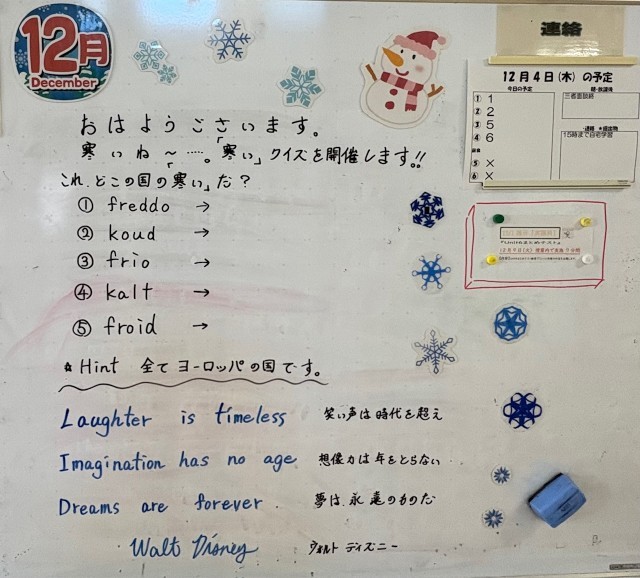 12月
December
連絡
12月4日(木)の予定
今日の予定
① 1
② 2
③ 5
④ 6
⑤ ×
⑥ ×
三者面談終
15時まで自宅学習
おはようございます。
寒いね~……。「寒い」クイズを開催します!!
これ、どこの国の「寒い」だ?
① freddo →
② koud →
③ frio →
④ kalt →
⑤ froid →
☆Hint 全てヨーロッパの国です。
Laughter is timeless 笑い声は時代を超え
Imagination has no age 想像力は年をとらない
Dreams are forever 夢は、永遠のものだ
Walt Disney ウォルト ディズニー